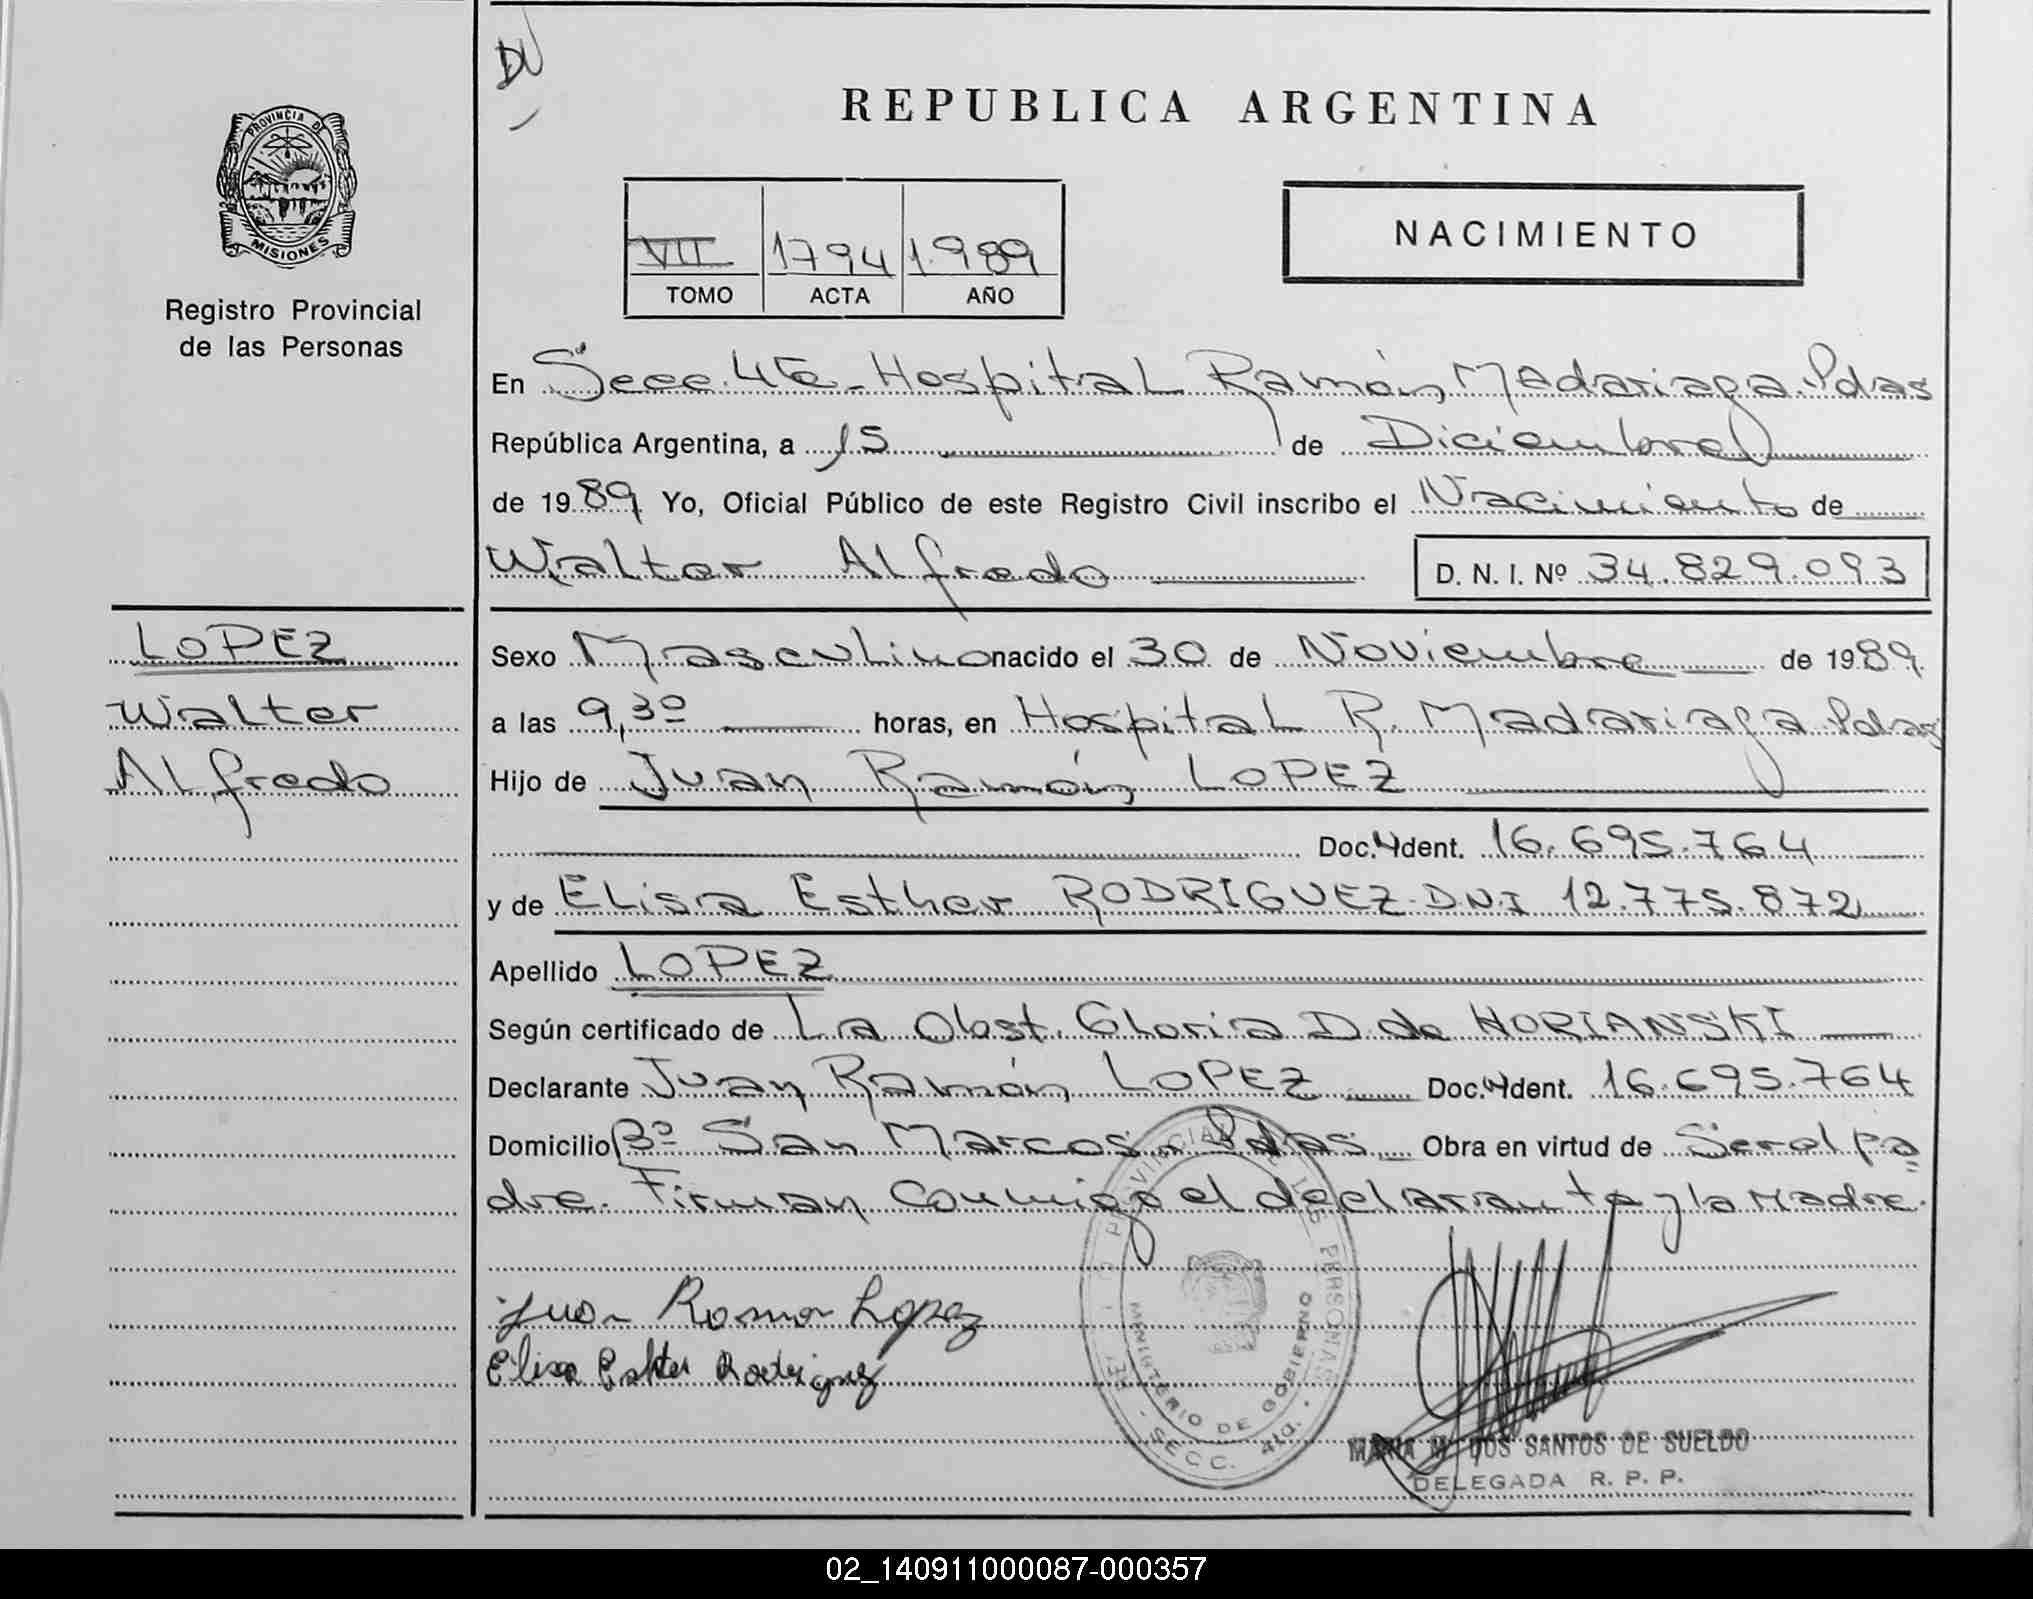 DV
PROVINCIA DE
MISIONES
Registro Provincial
de las Personas
REPUBLICA ARGENTINA
VII 1794 1.989
TOMO ACTA AÑO
NACIMIENTO
En Secc. 4ta - Hospital Ramón Madariaga. Pdas
República Argentina, a 15 de Diciembre
de 1989 Yo, Oficial Público de este Registro Civil inscribo el Nacimiento de
Walter Alfredo D. N. I. Nº 34.829.093
LOPEZ
Walter
Alfredo
Sexo Masculino nacido el 30 de Noviembre de 1989
a las 9,30 horas, en Hospital R. Madariaga. Pdas
Hijo de Juan Ramón LOPEZ
Doc. Ident. 16.695.764
y de Elisa Esther RODRIGUEZ. DNI 12.775.872
Apellido LOPEZ
Según certificado de La Obst. Gloria D. de HORIANSKI
Declarante Juan Ramón LOPEZ Doc. Ident. 16.695.764
Domicilio Bº San Marcos. Pdas Obra en virtud de Ser el pa
dre. Firman conmigo el declarante y la Madre.
Juan Ramon Lopez
Elisa Esther Rodriguez
PROVINCIAL DE LAS PERSONAS
MINISTERIO DE GOBIERNO
SECC. 4ta.
MARIA M. DOS SANTOS DE SUELDO
DELEGADA R. P. P.
02_140911000087-000357